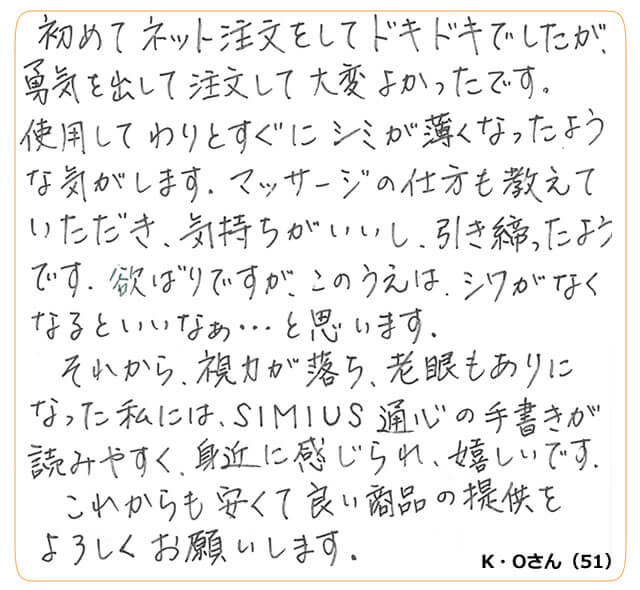 初めてネット注文をしてドキドキでしたが、
勇気を出して注文して大変よかったです。
使用してわりとすぐにシミが薄くなったよう
な気がします。マッサージの仕方も教えて
いただき、気持ちがいいし、引き締ったよう
です。欲ばりですが、このうえは、シワがなく
なるといいなぁ…と思います。
それから、視力が落ち、老眼もありに
なった私には、SIMIUS通心の手書きが
読みやすく、身近に感じられ、嬉しいです。
これからも安くて良い商品の提供を
よろしくお願いします。
K・Oさん（51）